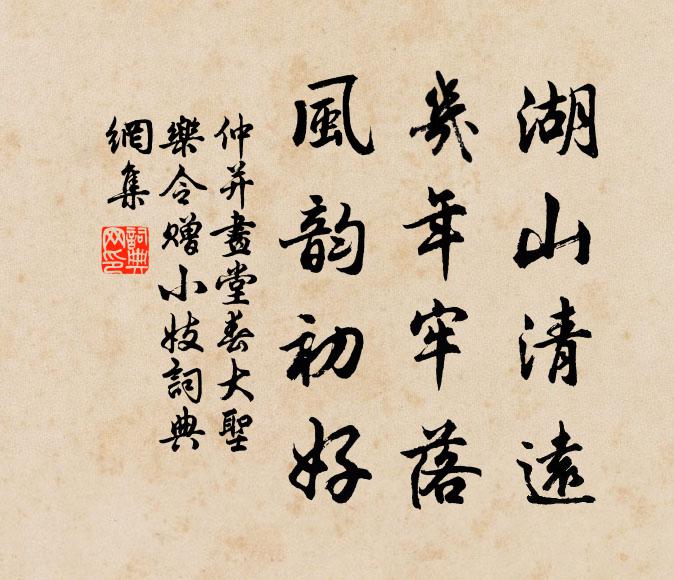 湖山清遠
幾年牢落
風韵初好
仲并畫堂春大聖
樂令贈小妓詞典
網集
詞典
网印